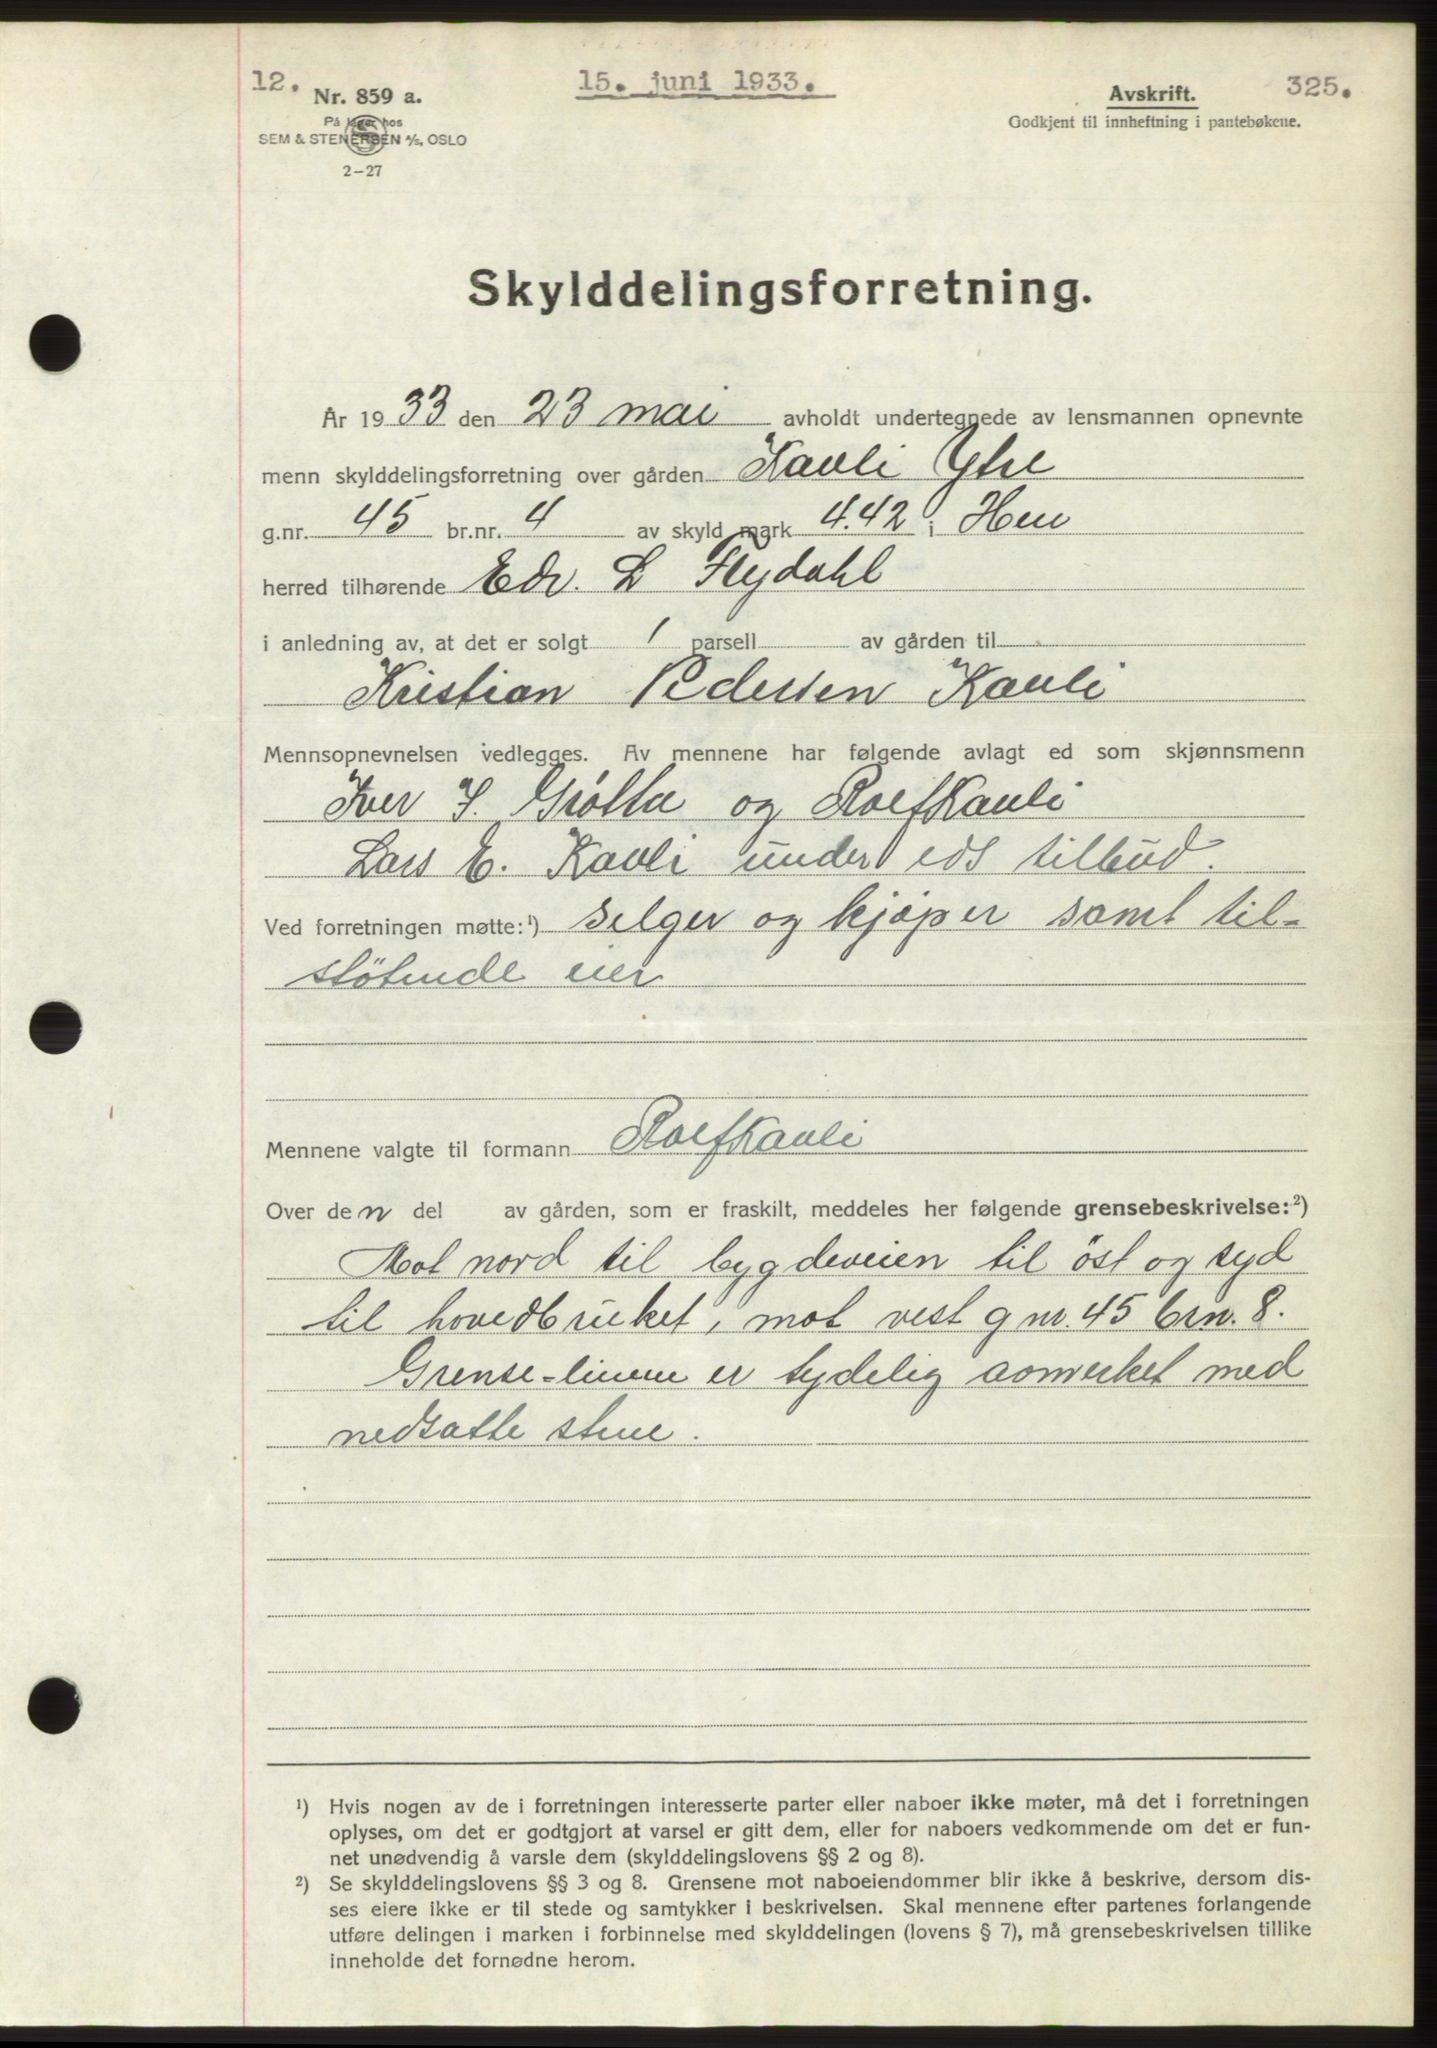 12.
15. juni 1933.
325.
Nr. 859 a.
På lager hos
SEM & STENERSEN A/S, OSLO
2-27
Avskrift.
Godkjent til innheftning i pantebøkene.
Skylddelingsforretning.
År 1933 den 23 mai avholdt undertegnede av lensmannen opnevnte
menn skylddelingsforretning over gården Kavli Ytre
g.nr. 45 br.nr. 4 av skyld mark 4.42 i Hen
herred tilhørende Edv. L Flydahl
i anledning av, at det er solgt 1 parsell av gården til
Kristian Pedersen Kavli
Mennsopnevnelsen vedlegges. Av mennene har følgende avlagt ed som skjønnsmenn
Iver I. Grøtta og Rolf Kavli
Lars E. Kavli under eds tilbud.
Ved forretningen møtte:¹) selger og kjøper samt til-
støtende eier
Mennene valgte til formann Rolf Kavli
Over den del av gården, som er fraskilt, meddeles her følgende grensebeskrivelse:²)
Mot nord til bygdeveien til öst og syd
til hovedbruket, mot vest g nr. 45 brn. 8.
Grense-linene er tydelig avmerket med
nedsatte stene.
¹) Hvis nogen av de i forretningen interesserte parter eller naboer ikke møter, må det i forretningen
oplyses, om det er godtgjort at varsel er gitt dem, eller for naboers vedkommende om det er fun-
net unødvendig å varsle dem (skylddelingslovens §§ 2 og 8).
²) Se skylddelingslovens §§ 3 og 8. Grensene mot naboeiendommer blir ikke å beskrive, dersom dis-
ses eiere ikke er til stede og samtykker i beskrivelsen. Skal mennene efter partenes forlangende
utføre delingen i marken i forbinnelse med skylddelingen (lovens § 7), må grensebeskrivelsen tillike
inneholde det fornødne herom.